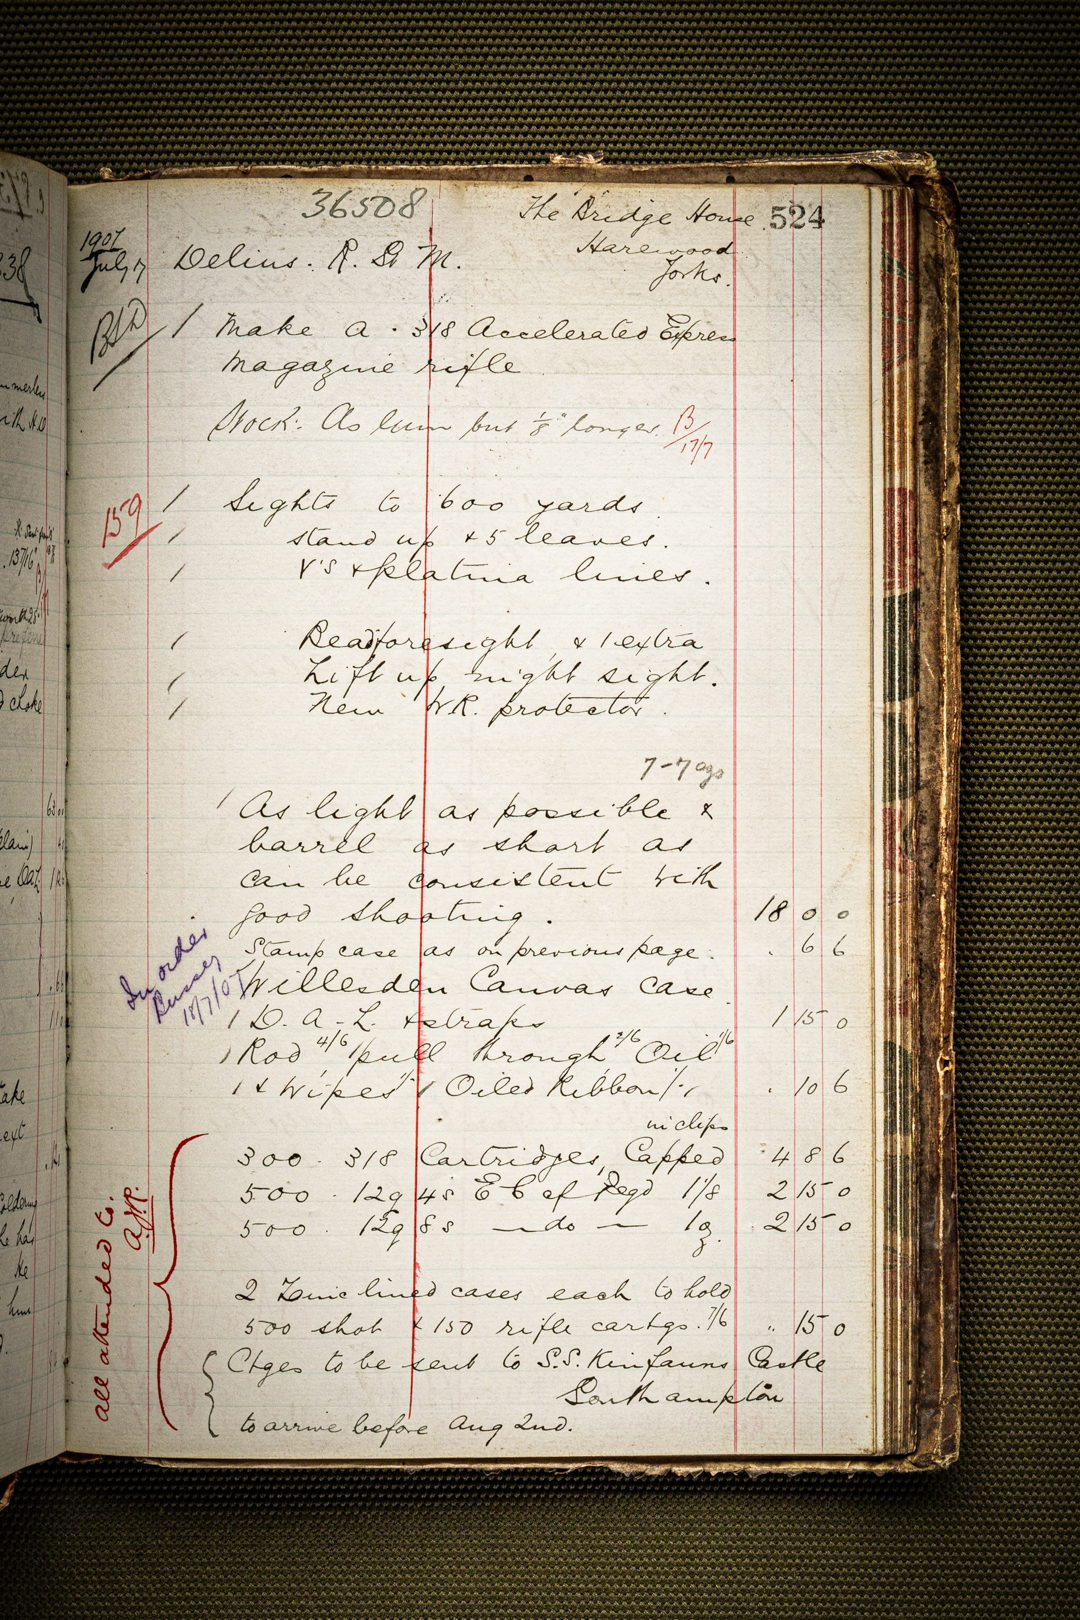 36508
The Bridge House 524
Harewood
Yorks.
1907
July 17 Delius. R. St M.
1 Make a .318 Accelerated Express
magazine rifle
Stock: As gun but 1/8" longer. B
17/7
159
1 Sights to 600 yards
1 stand up & 5 leaves.
1 V's & platina lines.
1 Bead foresight & 1 extra
1 Lift up night sight.
1 New W.R. protector.
7-7 ozs
1 As light as possible &
barrel as short as
can be consistent with
good shooting. 18 0 0
Stamp case as on previous page. . 6 6
In order
18/7/07
Willesden Canvas case
1 D.A.L. & straps 1 15 0
1 Rod 4/6 1 pull through 2/6 Oil 1/6
1 & Wipes 1/- 1 Oiled Ribbon 1/- . 10 6
in clips
300 .318 Cartridges, Capped 4 8 6
500 . 12g 4s E C of Regd 1 1/8 2 15 0
500 . 12g 8s —do— 1 oz. 2 15 0
2 Zinc lined cases each to hold
500 shot & 150 rifle cartgs. 7/6 .. 15 0
Ctges to be sent to S.S. Kinfauns Castle
Southampton
to arrive before Aug 2nd.
all attended to.